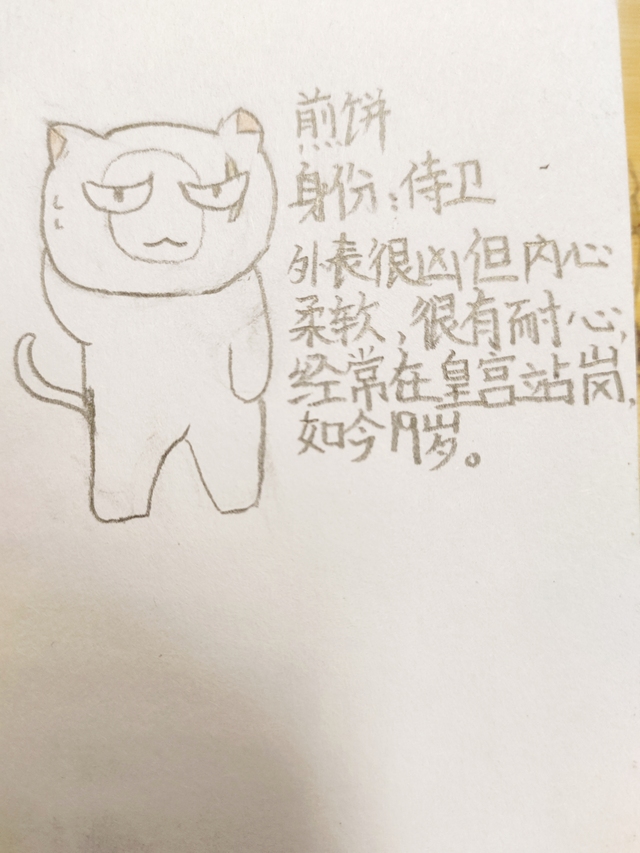 煎饼
身份：侍卫
外表很凶但内心
柔软，很有耐心，
经常在皇宫站岗，
如今19岁。